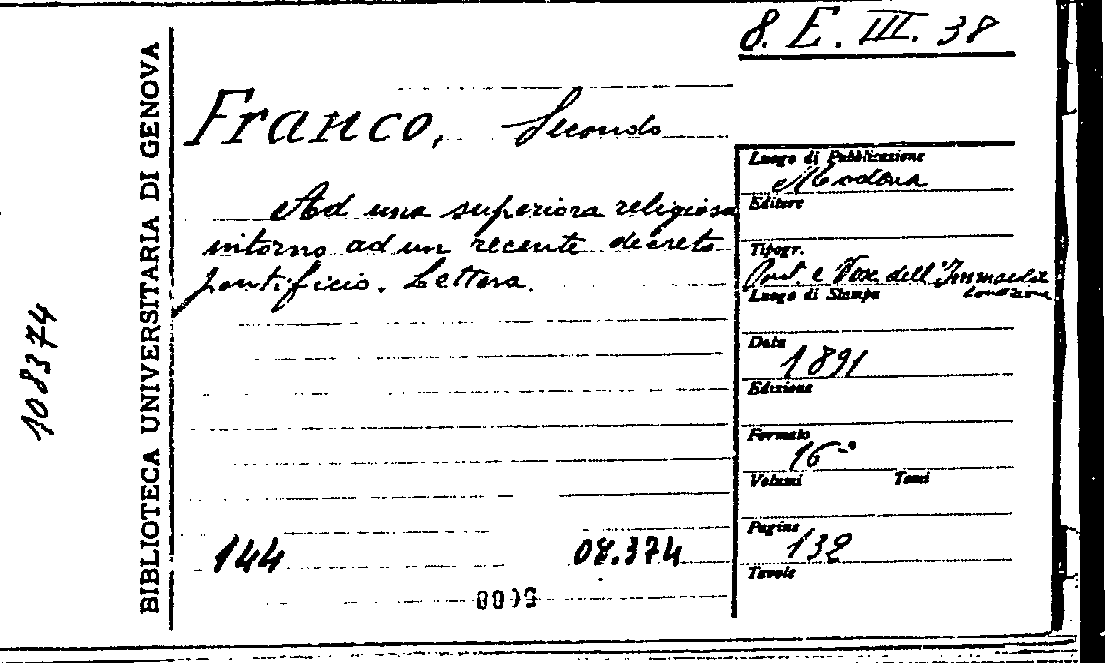 8. E. III. 38
BIBLIOTECA UNIVERSITARIA DI GENOVA
108374
Franco, Secondo
Ad una superiora religiosa
intorno ad un recente decreto
pontificio. Lettera.
144
08.374
Luogo di Pubblicazione
Modena
Editore
Tipogr.
Pont. e dell'Immacolat
Luogo di Stampa
Data
1891
Edizione
Formato
16°
Volumi Tomi
Pagine
132
Tavole